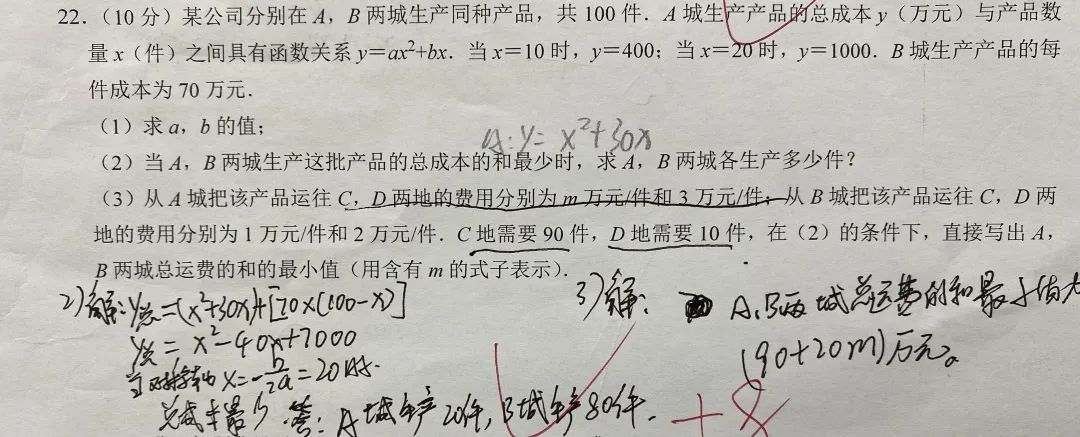 22.(10分)某公司分别在A,B两城生产同种产品,共100件.A城生产产品的总成本y(万元)与产品数
量x(件)之间具有函数关系y=ax²+bx.当x=10时,y=400;当x=20时,y=1000.B城生产产品的每
件成本为70万元.
(1)求a,b的值;
A:y=x²+30x
(2)当A,B两城生产这批产品的总成本的和最少时,求A,B两城各生产多少件?
(3)从A城把该产品运往C,D两地的费用分别为m万元/件和3万元/件;从B城把该产品运往C,D两
地的费用分别为1万元/件和2万元/件.C地需要90件,D地需要10件,在(2)的条件下,直接写出A,
B两城总运费的和的最小值(用含有m的式子表示).
2)解:y总=(x²+30x)+[70×(100-x)]
y总=x²-40x+7000
当对称轴x=-b/2a=20时.
总成本最少 答:A城生产20件,B城生产80件.
3)解: A、B两城总运费的和最小值为
(90+20m)万元。
+8